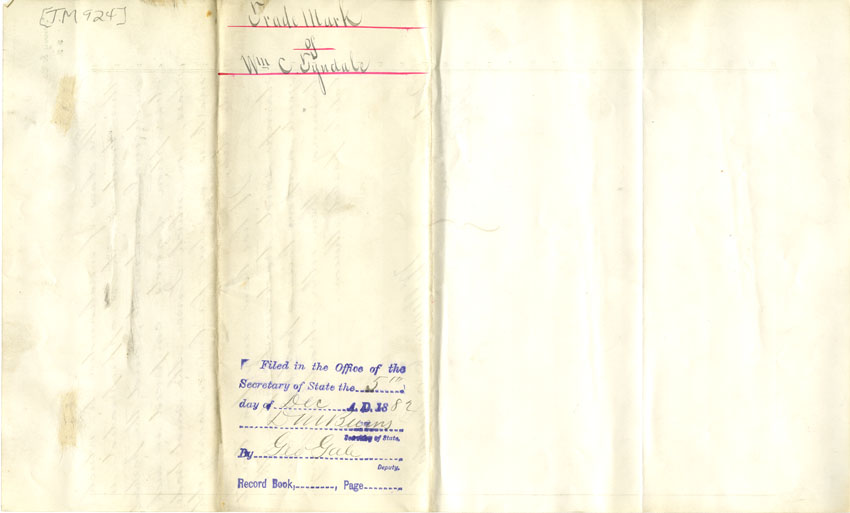 [T.M 924]
Trade Mark
of
Wm C. Tyndale
Filed in the Office of the
Secretary of State the 5th
day of Dec A.D. 1882
D M Burns
Secretary of State.
By Geo Gale
Deputy.
Record Book, , Page